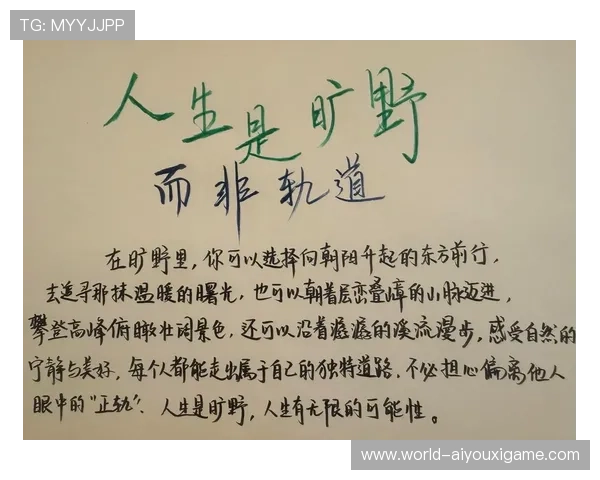 TG: MYYJJPP
人生是旷野
而非轨道
在旷野里，你可以选择向朝阳升起的东方前行，
去追寻那抹温暖的曙光，也可以朝着层峦叠嶂的山脉迈进，
攀登高峰俯瞰壮阔景色，还可以沿着潺潺的溪流漫步，感受自然的
宁静与美好，每个人都能走出属于自己的独特道路，不必担心偏离他人
眼中的“正轨”，人生是旷野，人生有无限的可能性。
www.world-aiyouxigame.com